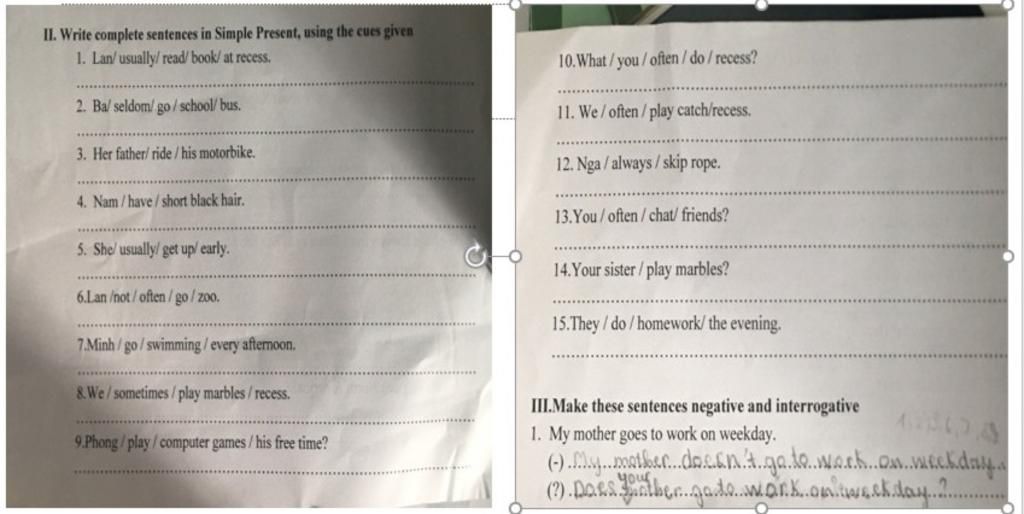 II. Write complete sentences in Simple Present, using the cues given
1. Lan/ usually/ read/ book/ at recess.
2. Ba/ seldom/ go / school/ bus.
3. Her father/ ride / his motorbike.
4. Nam / have / short black hair.
5. She/ usually/ get up/ early.
6.Lan /not / often / go / zoo.
7.Minh / go / swimming / every afternoon.
8.We / sometimes / play marbles / recess.
9.Phong / play / computer games / his free time?
10.What / you / often / do / recess?
11. We / often / play catch/recess.
12. Nga / always / skip rope.
13.You / often / chat/ friends?
14.Your sister / play marbles?
15.They / do / homework/ the evening.
III.Make these sentences negative and interrogative
1. My mother goes to work on weekday.
(-) My mother doesn't go to work on weekday.
your
(?) Does mother go to work on weekday ?